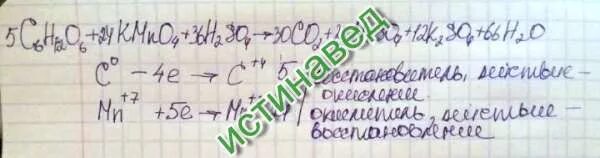 5C6H12O6+24KMnO4+36H2SO4→30CO2+2 +12K2SO4+66H2O
C⁰ - 4e → C⁺⁴ 5 восстановитель, действие -
окисление
Mn⁺⁷ +5e → Mn окислитель, действие -
восстановление
истинавед